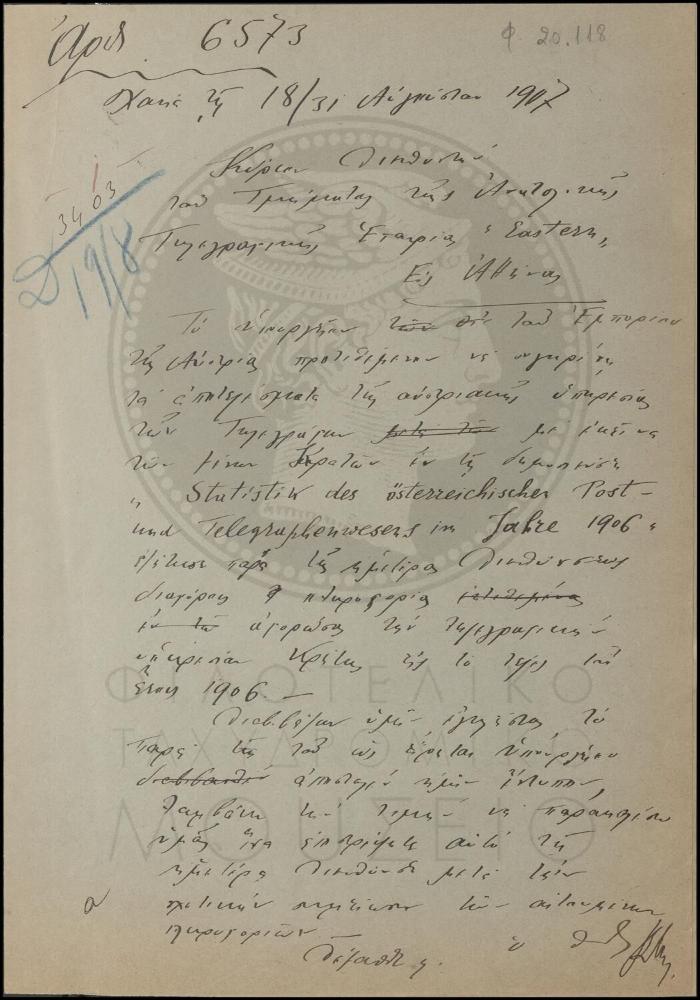 Ἀριθ. 6573
Φ. 20.118
Χανιά τῇ 18/31 Αὐγούστου 1907
3403
19/8
Κύριον Διευθυντὴν
τοῦ Τμήματος τῆς Ἀνατολικῆς
Τηλεγραφικῆς Ἑταιρίας "Eastern"
Εἰς Ἀθήνας
Τὸ Ὑπουργεῖον τοῦ Ἐμπορίου
τῆς Αὐστρίας προτιθέμενον νὰ συγκρίνῃ
τὰ ἀποτελέσματα τῆς αὐστριακῆς ὑπηρεσίας
τῶν Τηλεγράφων μὲ ἐκεῖνα
τῶν ξένων Κρατῶν ἐν τῇ δημοσιεύσει
„ Statistik des österreichischen Post-
und Telegraphenwesens im Jahre 1906 "
ἐζήτησε παρὰ τῆς ἡμετέρας Διευθύνσεως
διαφόρους πληροφορίας
ἀφορώσας τὴν τηλεγραφικὴν
ὑπηρεσίαν Κρήτης εἰς τὸ τέλος τοῦ
ἔτους 1906.—
Διαβιβάζων ὑμῖν ἐγκλείστως τὸ
παρὰ τοῦ ὡς εἴρηται Ὑπουργείου
ἀποσταλὲν ἡμῖν ἔντυπον,
λαμβάνω τὴν τιμὴν νὰ παρακαλέσω
ὑμᾶς ἵνα ἐπιστρέψητε αὐτὸ τῇ
ἡμετέρᾳ Διευθύνσει μετὰ τῶν
σχετικῶν σημειώσεων τῶν αἰτουμένων
πληροφοριῶν
ὁ
ΦΙΛΟΤΕΛΙΚΟ
ΤΑΧΥΔΡΟΜΙΚΟ
ΜΟΥΣΕΙΟ